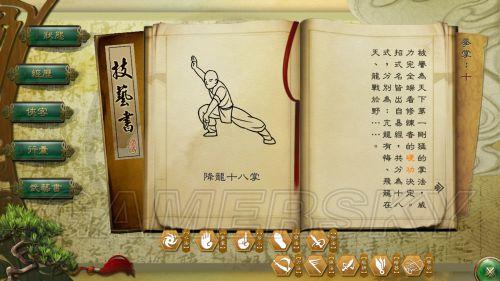 狀態
經歷
俠客
行囊
武藝書
技藝書
降龍十八掌
拳掌：十
被譽為天下第一剛猛的掌法，威
力完全端看修練者的硬功決定。
招式名皆出自易經，共分為十八
式，分別為：亢龍有悔、飛龍在
天、龍戰於野……
GAMERSKY